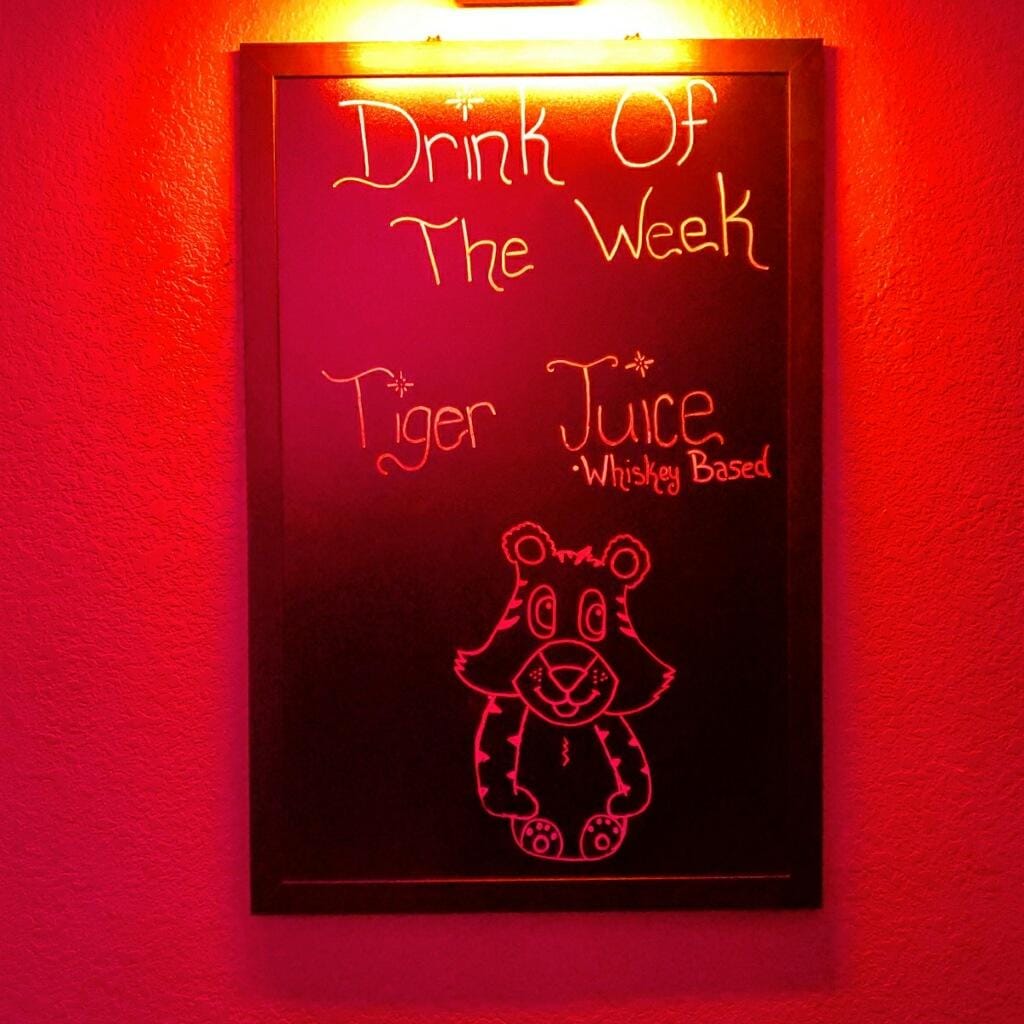 Drink Of
The Week
Tiger Juice
·Whiskey Based